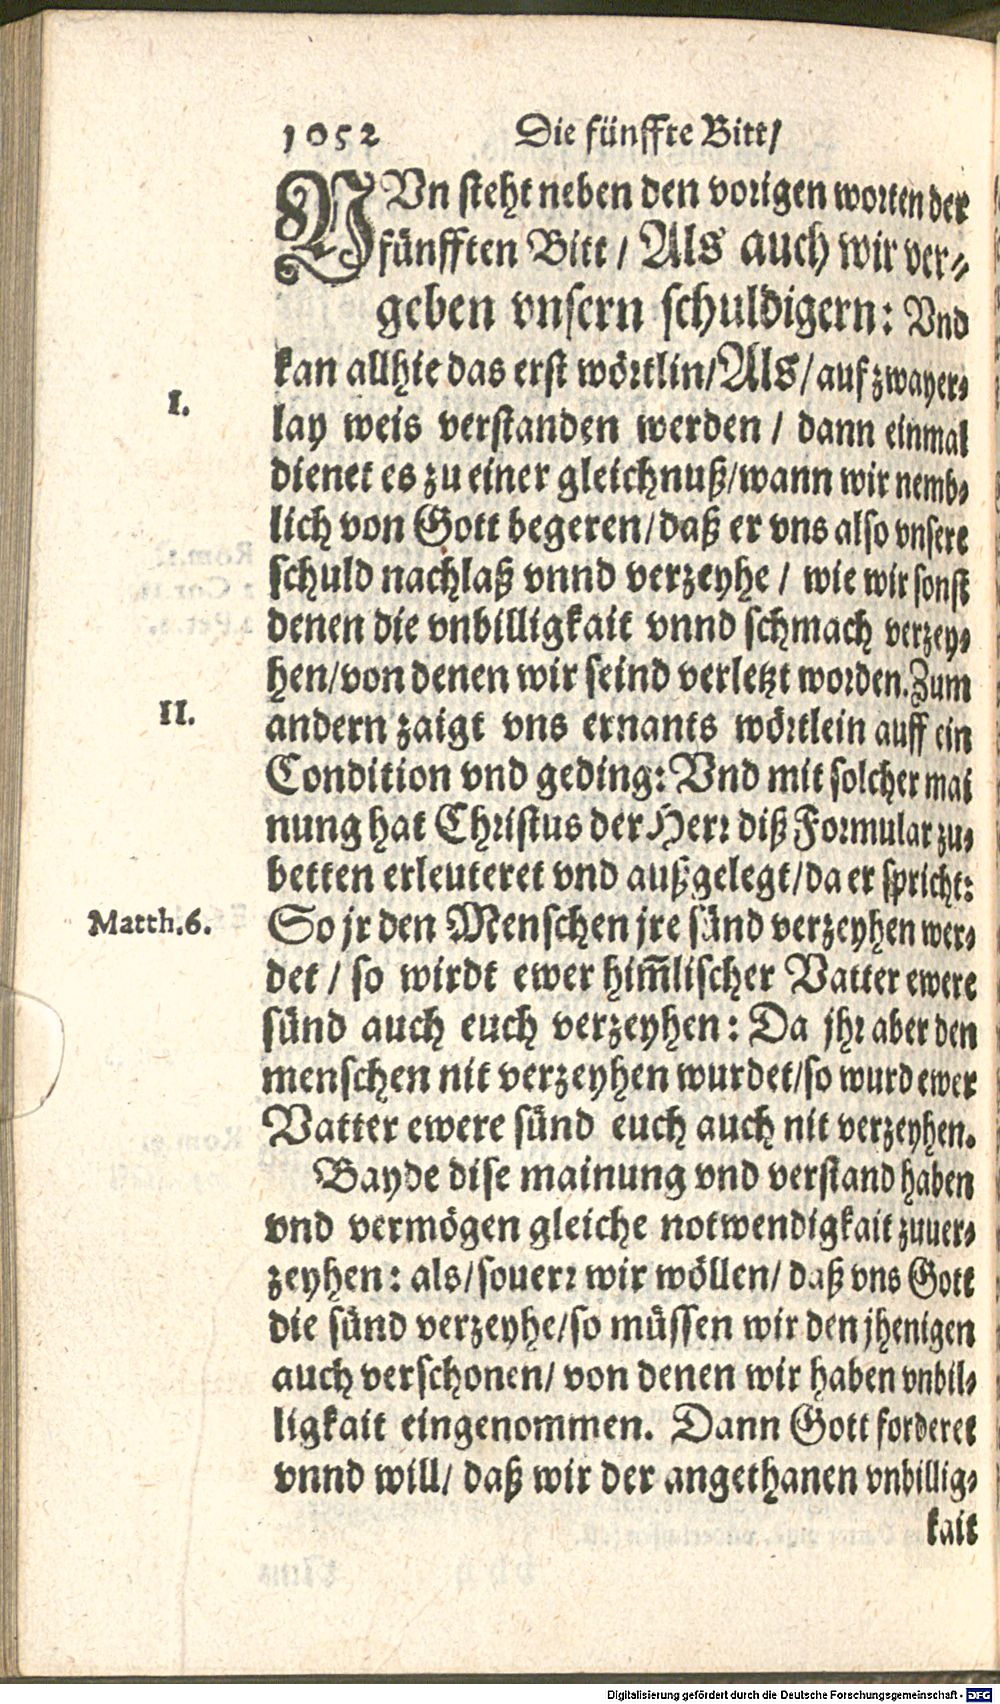 1052 Die fünffte Bitt/
NVn steht neben den vorigen worten der
fünfften Bitt / Als auch wir ver-
geben vnsern schuldigern: Vnd
kan allhie das erst wörtlin/Als/auf zwayer-
I.
lay weis verstanden werden / dann einmal
dienet es zu einer gleichnuß/wann wir nemb-
lich von Gott begeren/daß er vns also vnsere
schuld nachlaß vnnd verzeyhe / wie wir sonst
denen die vnbilligkait vnnd schmach verzey-
hen/von denen wir seind verletzt worden. Zum
II.
andern zaigt vns ernants wörtlein auff ein
Condition vnd geding: Vnd mit solcher mai
nung hat Christus der Herr diß Formular zu-
betten erleuteret vnd außgelegt/da er spricht:
Matth.6.
So jr den Menschen jre sünd verzeyhen wer-
det / so wirdt ewer him̃lischer Vatter ewere
sünd auch euch verzeyhen: Da jhr aber den
menschen nit verzeyhen wurdet/so wurd ewer
Vatter ewere sünd euch auch nit verzeyhen.
Bayde dise mainung vnd verstand haben
vnd vermögen gleiche notwendigkait zuuer-
zeyhen: als/souerr wir wöllen/ daß vns Gott
die sünd verzeyhe/so müssen wir den jhenigen
auch verschonen/ von denen wir haben vnbil-
ligkait eingenommen. Dann Gott forderet
vnnd will/ daß wir der angethanen vnbillig-
kait
Digitalisierung gefördert durch die Deutsche Forschungsgemeinschaft - DFG